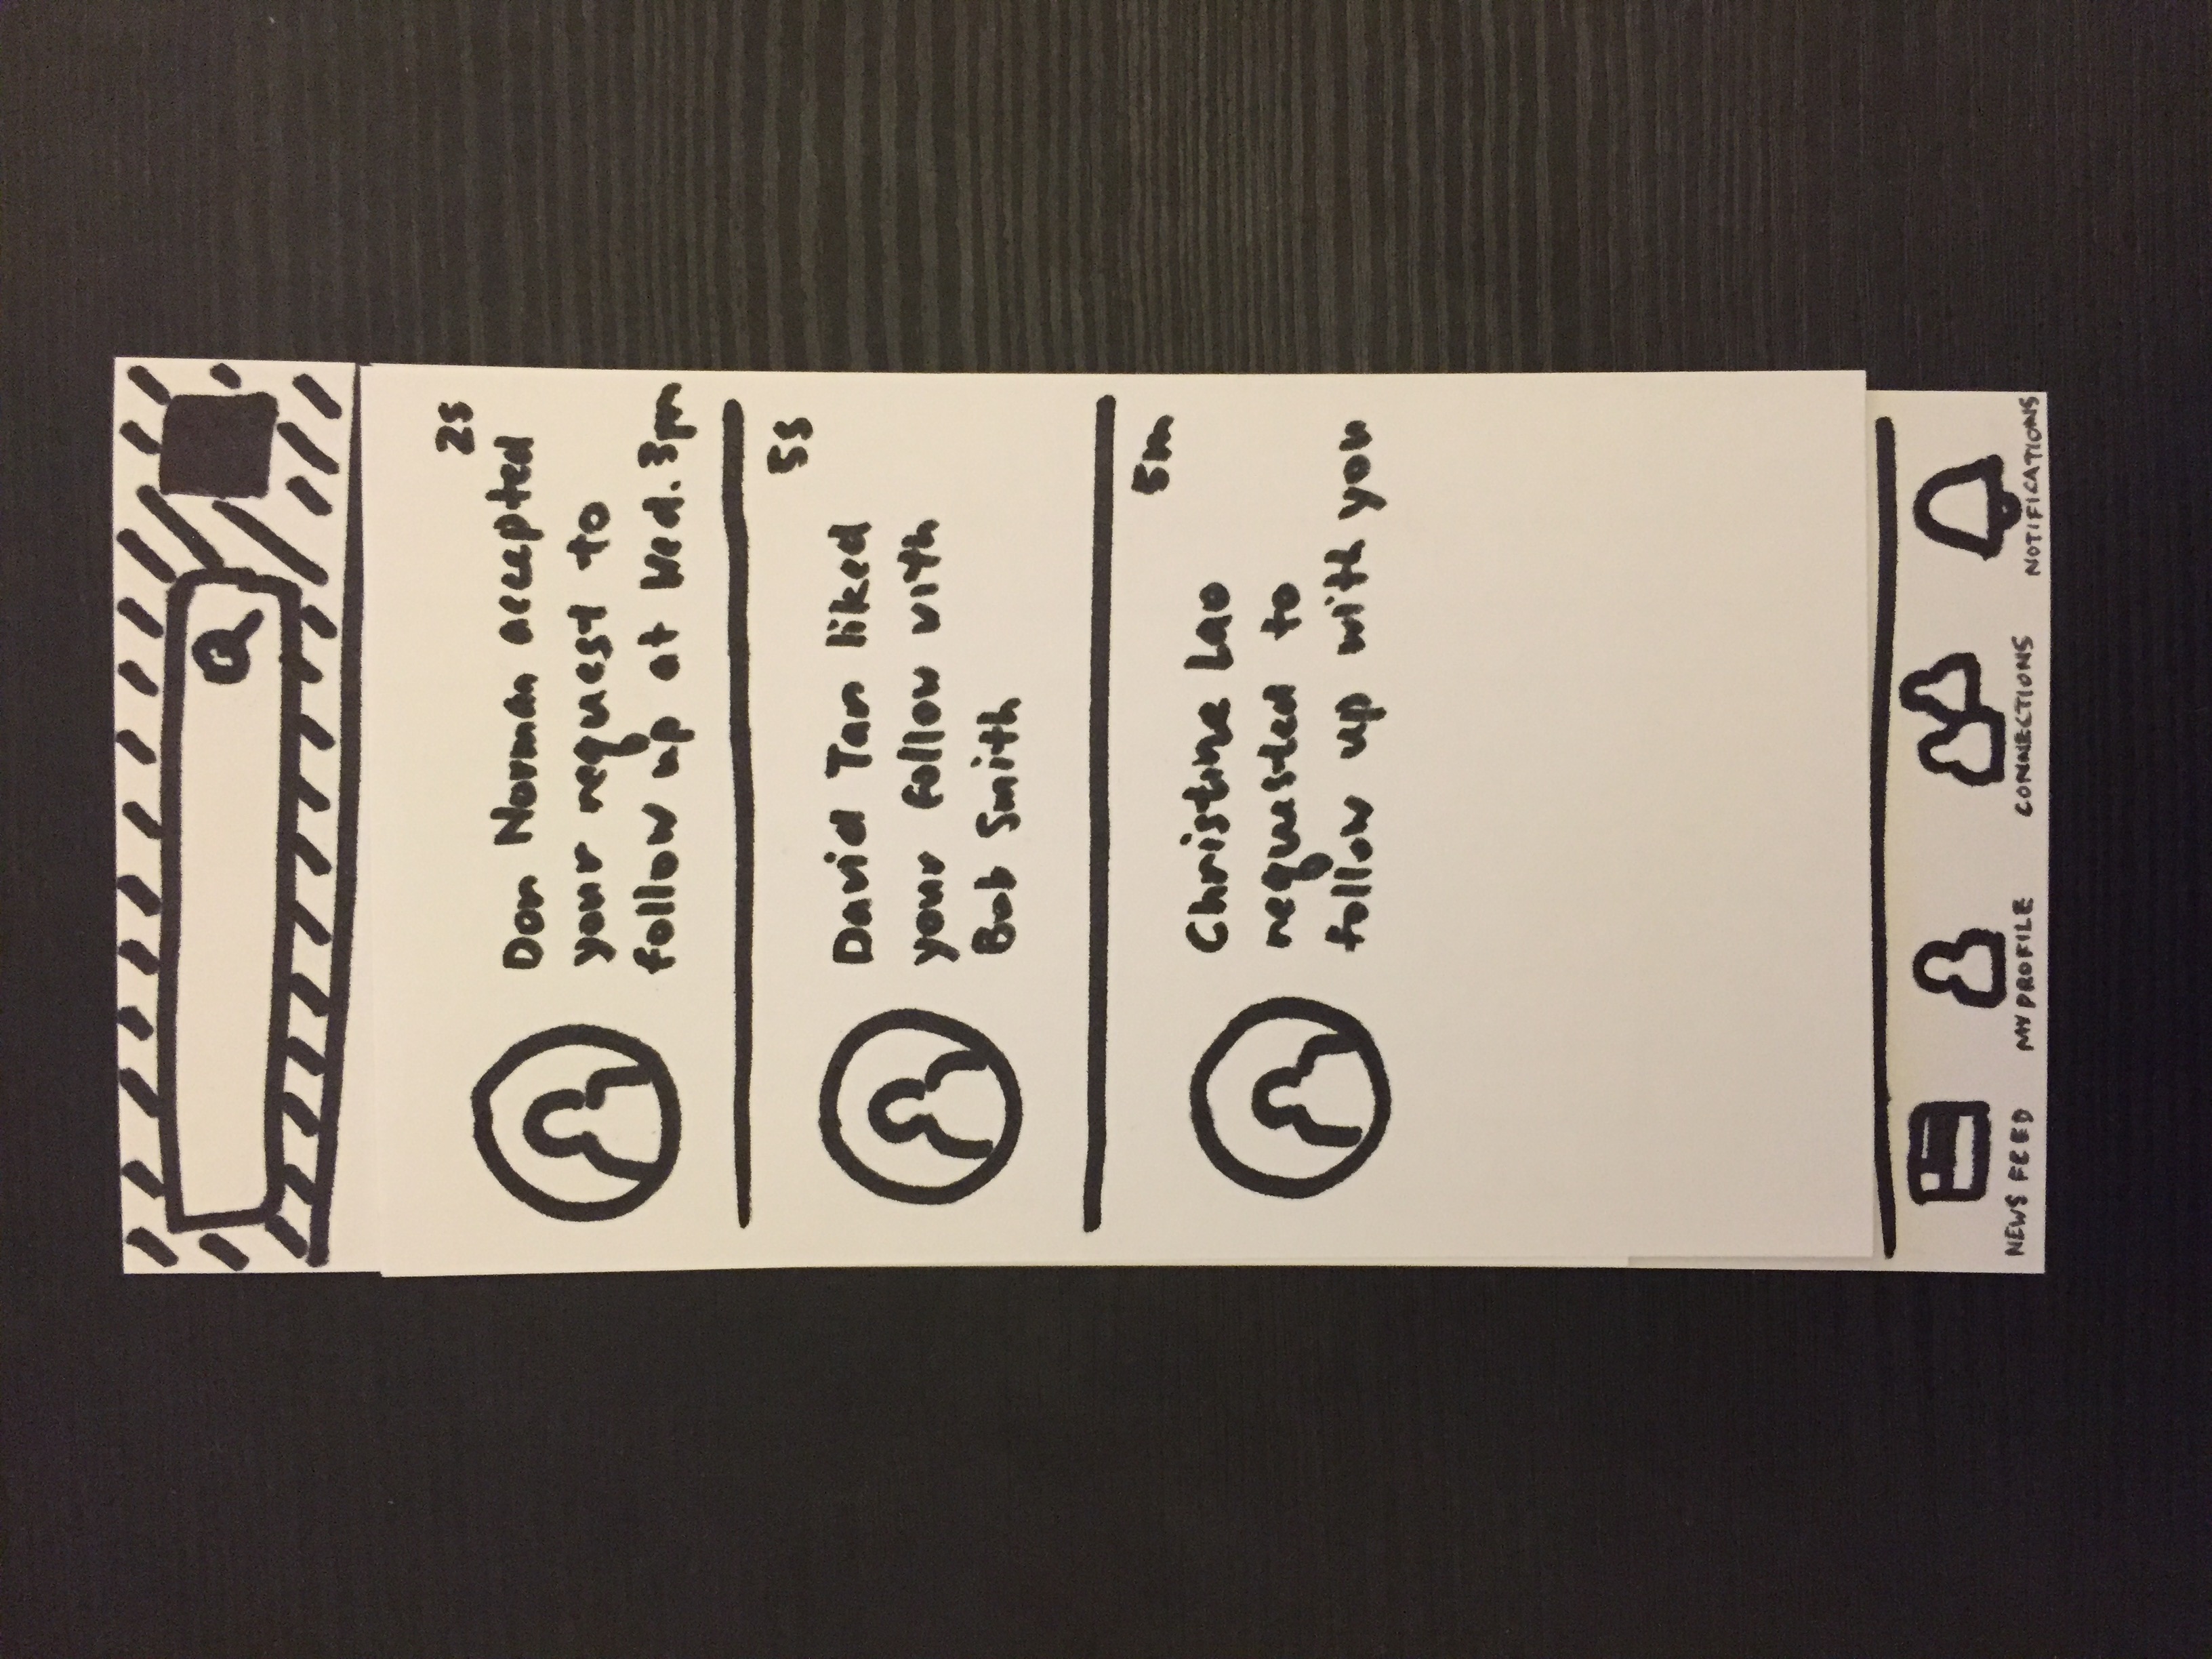 2s
Don Norman accepted
your request to
follow up at Wed. 3pm
5s
David Tan liked
your follow with
Bob Smith
5m
Christine Lao
requested to
follow up with you
NEWS FEED
MY PROFILE
CONNECTIONS
NOTIFICATIONS